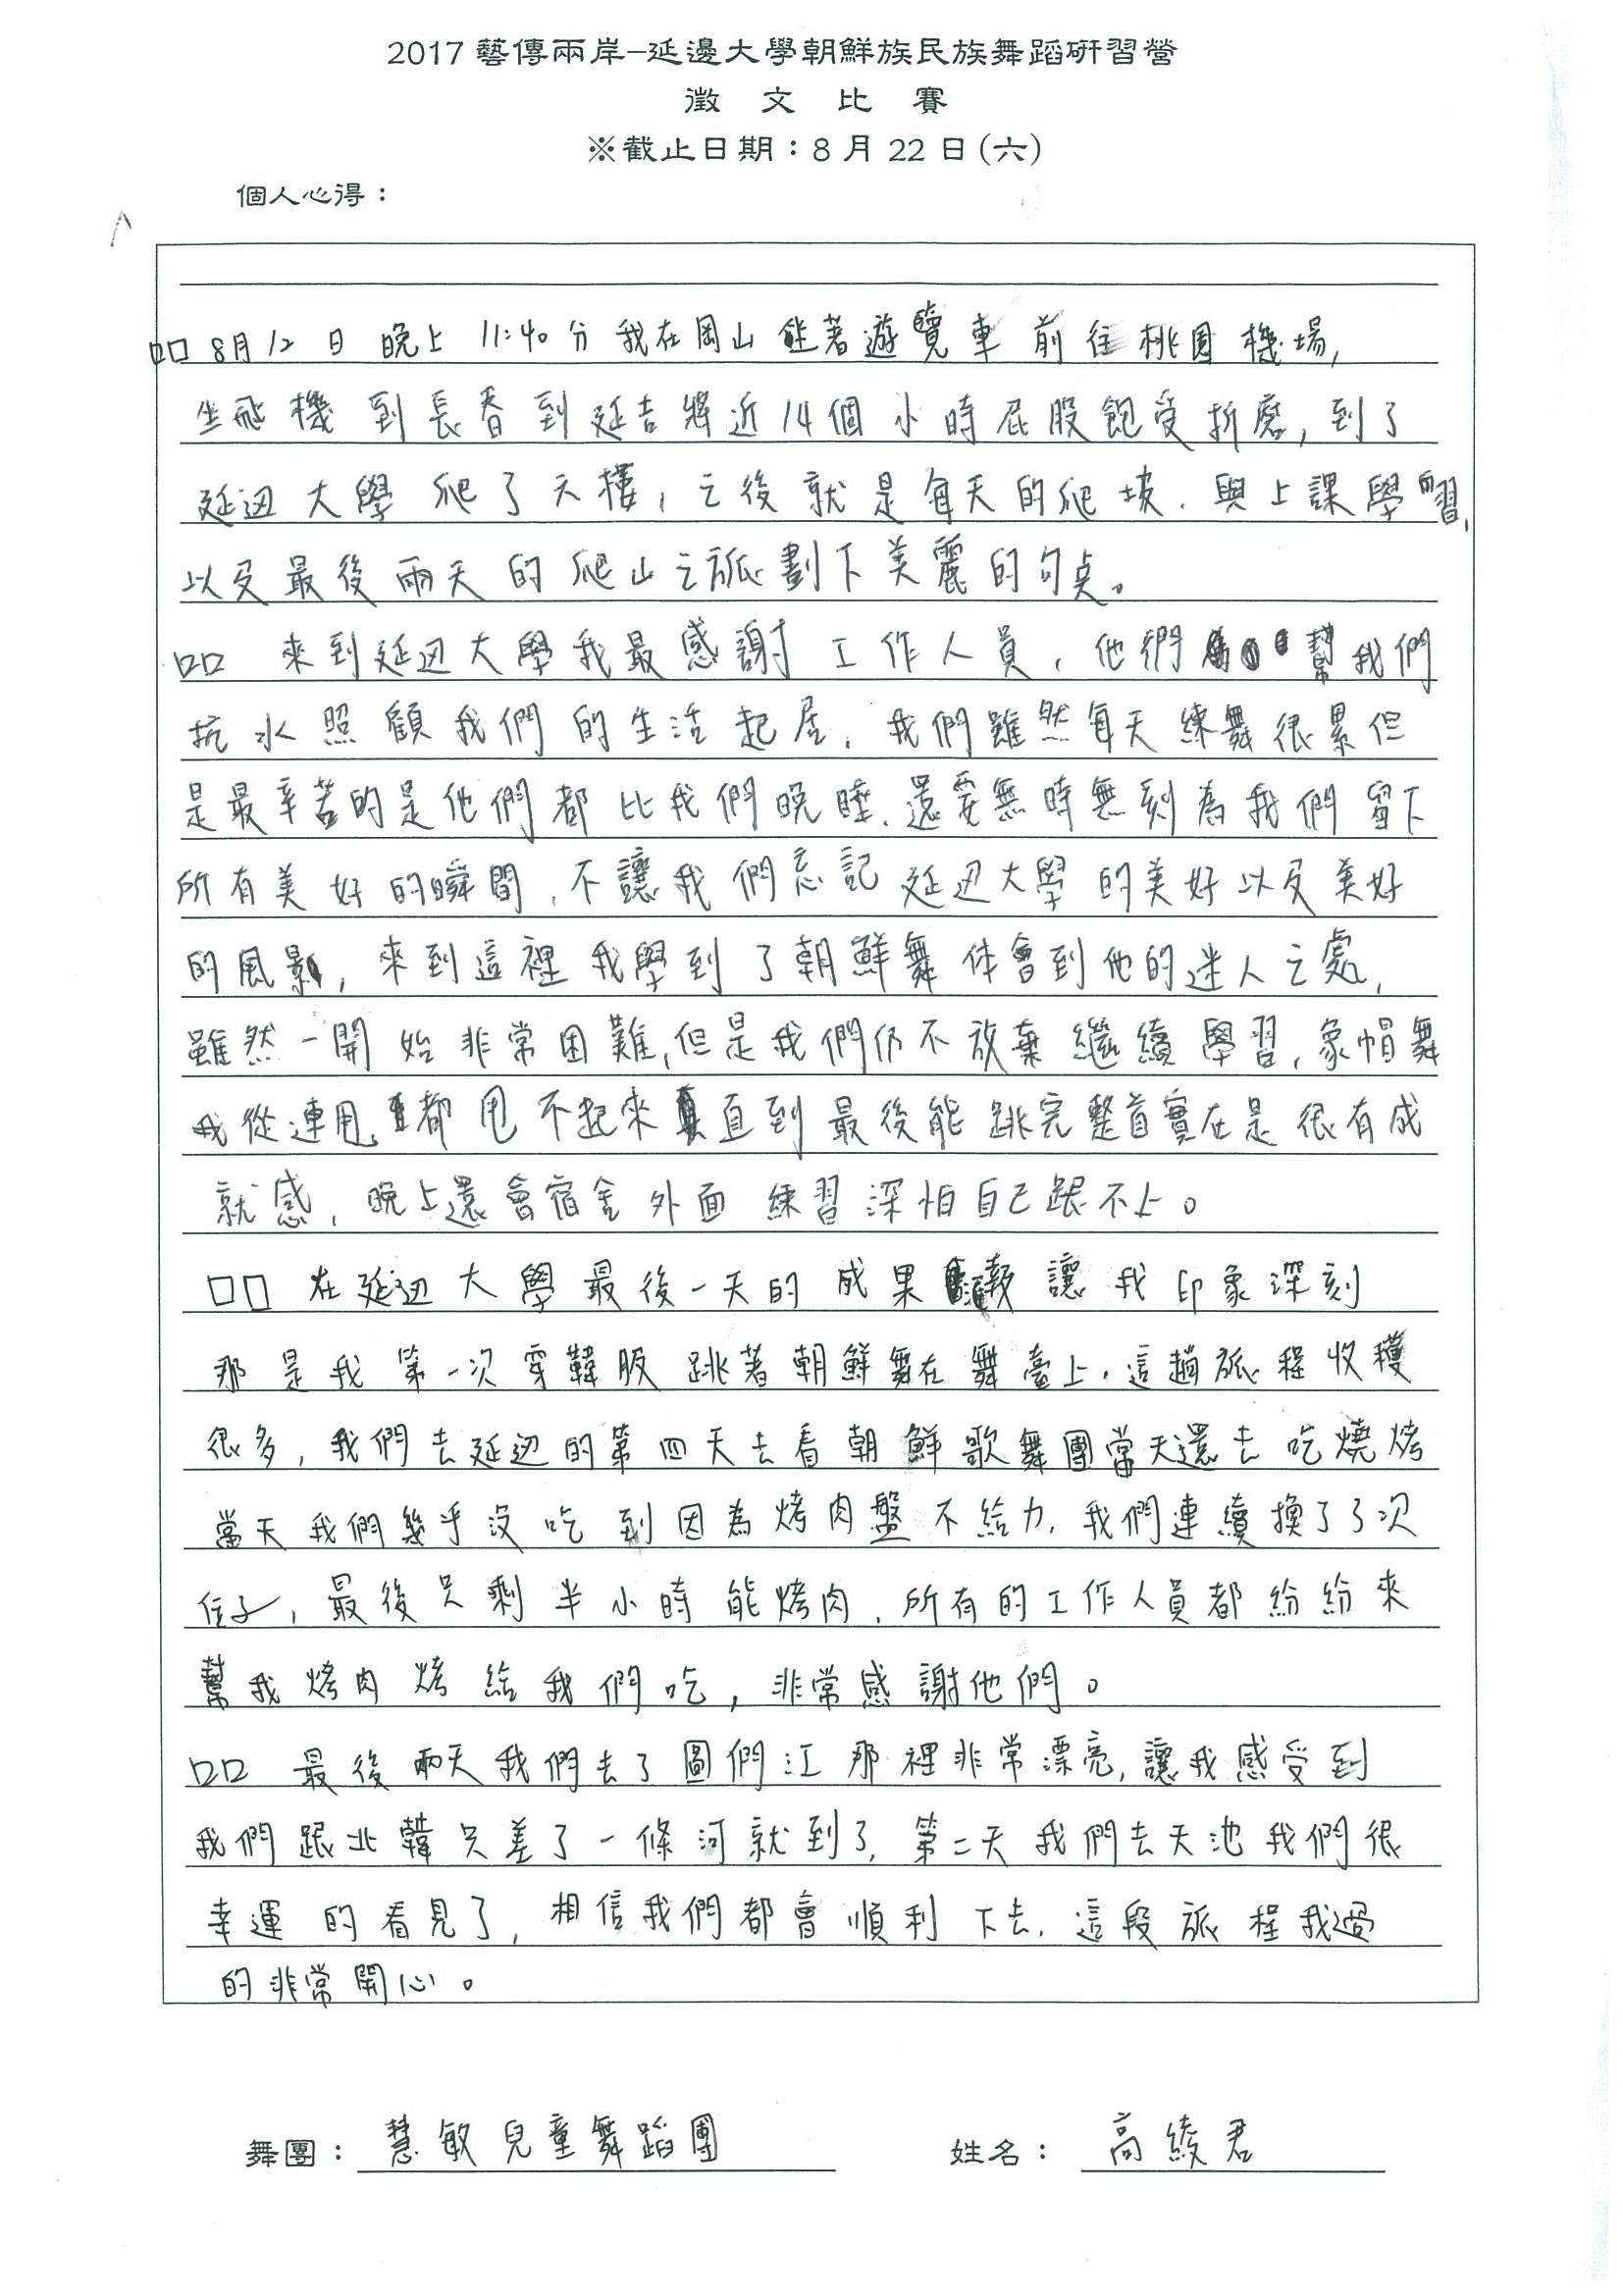 2017藝傳兩岸–延邊大學朝鮮族民族舞蹈研習營
徵文比賽
※截止日期：8月22日(六)
個人心得：
□□8月12日晚上11:40分我在岡山坐著遊覽車前往桃園機場,
坐飛機到長春到延吉將近14個小時屁股飽受折磨,到了
延边大學爬了六樓,之後就是每天的爬坡,與上課學習,
以及最後兩天的爬山之旅劃下美麗的句点。
□□來到延边大學我最感謝工作人員,他們幫我們
抗水照顧我們的生活起居,我們雖然每天練舞很累但
是最辛苦的是他們都比我們晚睡,還要無時無刻為我們留下
所有美好的瞬間,不讓我們忘記延边大學的美好以及美好
的風景,來到這裡我學到了朝鮮舞体會到他的迷人之處,
雖然一開始非常困難,但是我們仍不放棄繼續學習,象帽舞
我從連甩都甩不起來直到最後能跳完整首實在是很有成
就感,晚上還會宿舍外面練習深怕自己跟不上。
□□在延边大學最後一天的成果報讓我印象深刻
那是我第一次穿韓服跳著朝鮮舞在舞臺上,這趟旅程收穫
很多,我們去延边的第四天去看朝鮮歌舞團當天還去吃燒烤
當天我們幾乎沒吃到因為烤肉盤不給力,我們連續換了3次
位子,最後只剩半小時能烤肉,所有的工作人員都紛紛來
幫我烤肉烤給我們吃,非常感謝他們。
□□最後兩天我們去了圖們江那裡非常漂亮,讓我感受到
我們跟北韓只差了一條河就到了,第二天我們去天池我們很
幸運的看見了,相信我們都會順利下去,這段旅程我過
的非常開心。
舞團：慧敏兒童舞蹈團 姓名：高綾君